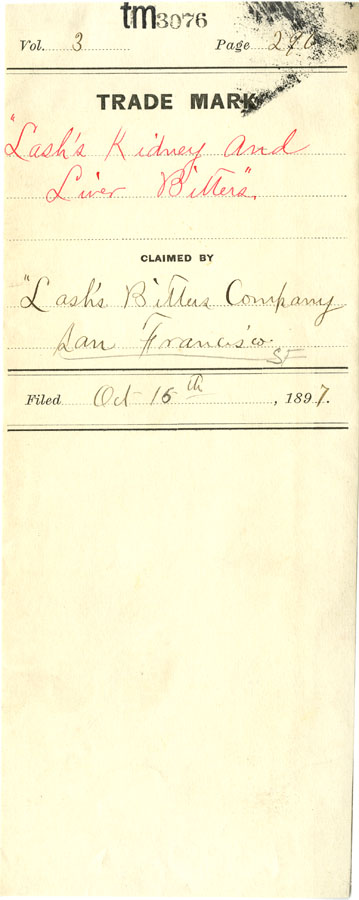 tm3076
Vol. 3 Page
TRADE MARK
"Lash's Kidney And
Liver Bitters".
CLAIMED BY
"Lash's Bitters Company
San Francisco.
SF
Filed Oct 15th, 1897.